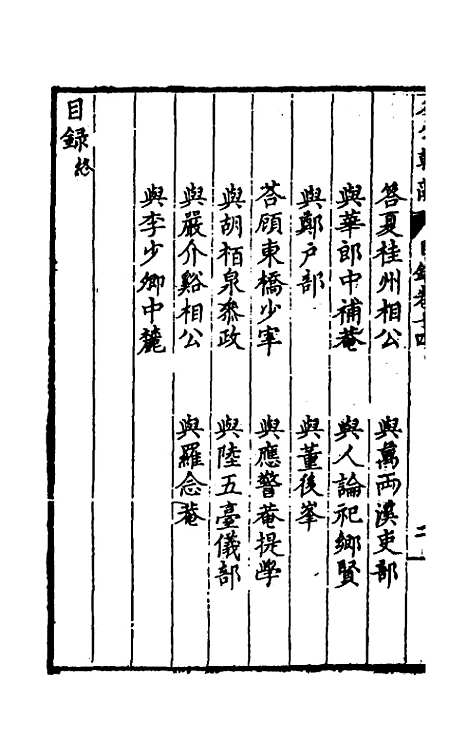 答夏桂州相公
與萬兩溪吏部
與華郎中補菴
與人論祀鄉賢
與鄭户部
與董後峯
荅顧東橋少宰
與應警菴提學
與胡栢泉叅政
與陸五臺儀部
與嚴介谿相公
與羅念菴
與李少卿中麓
目録終